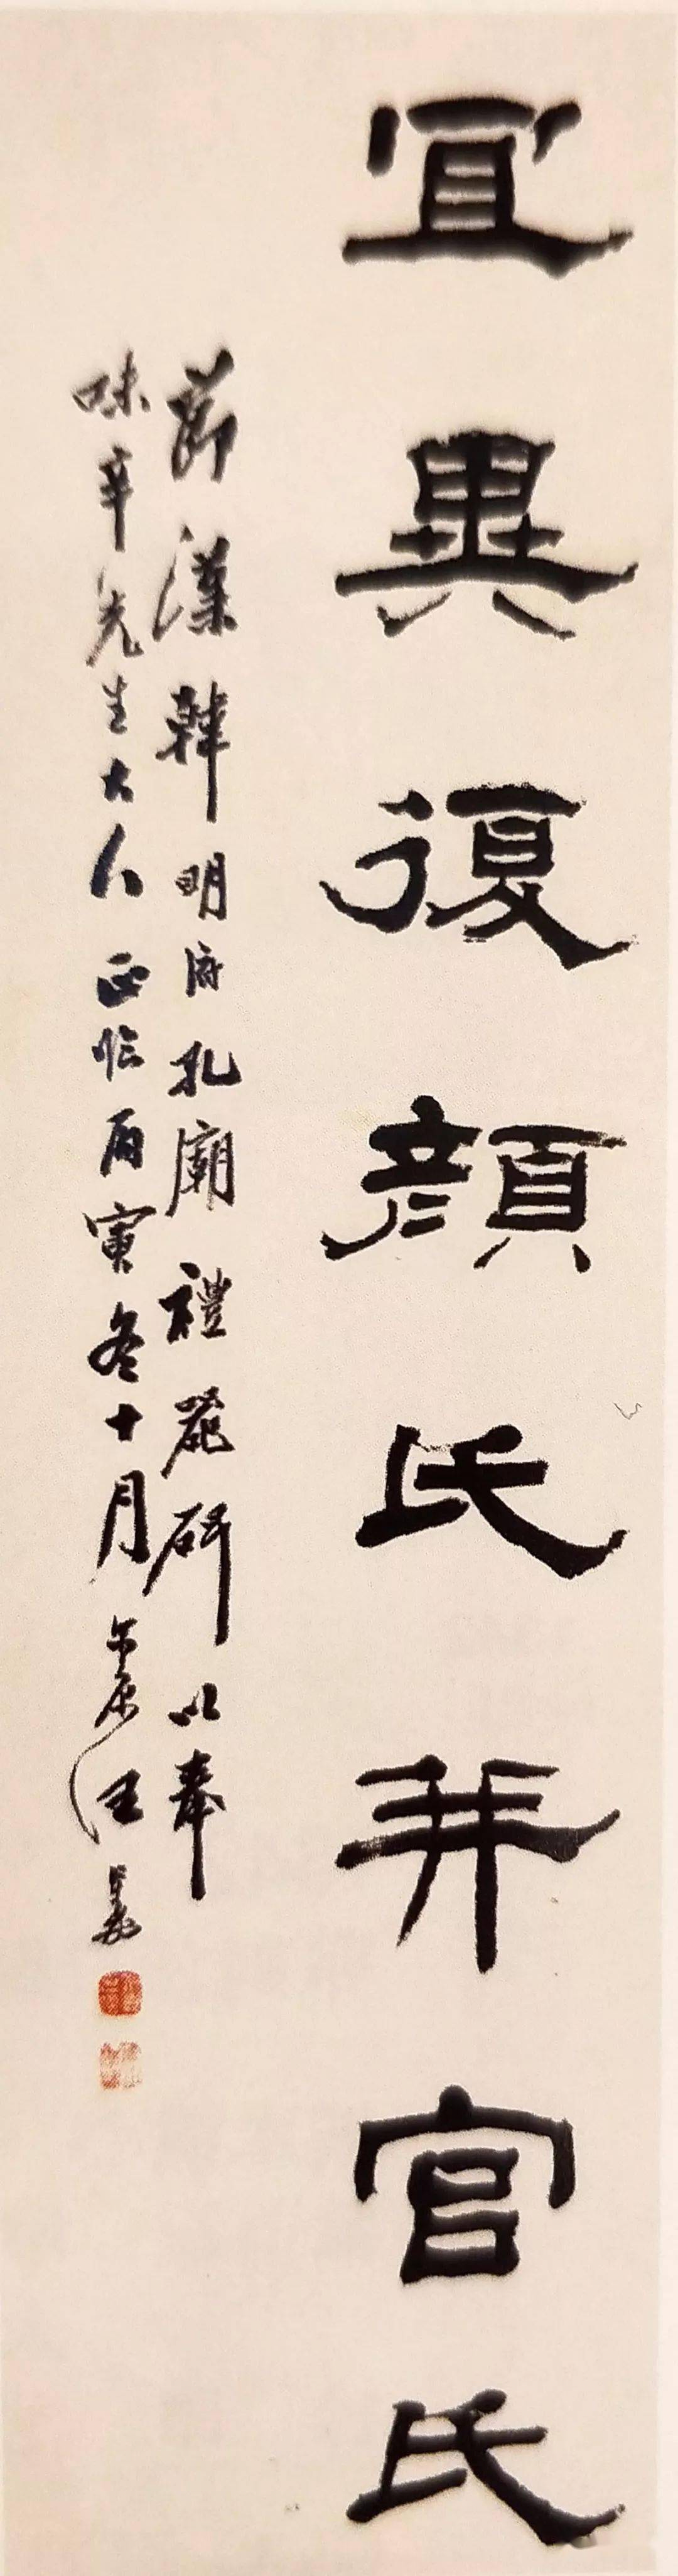 宜異復顏氏并官氏
節漢韓明府孔廟禮器碑以奉
味辛先生大人正临丙寅冬十月